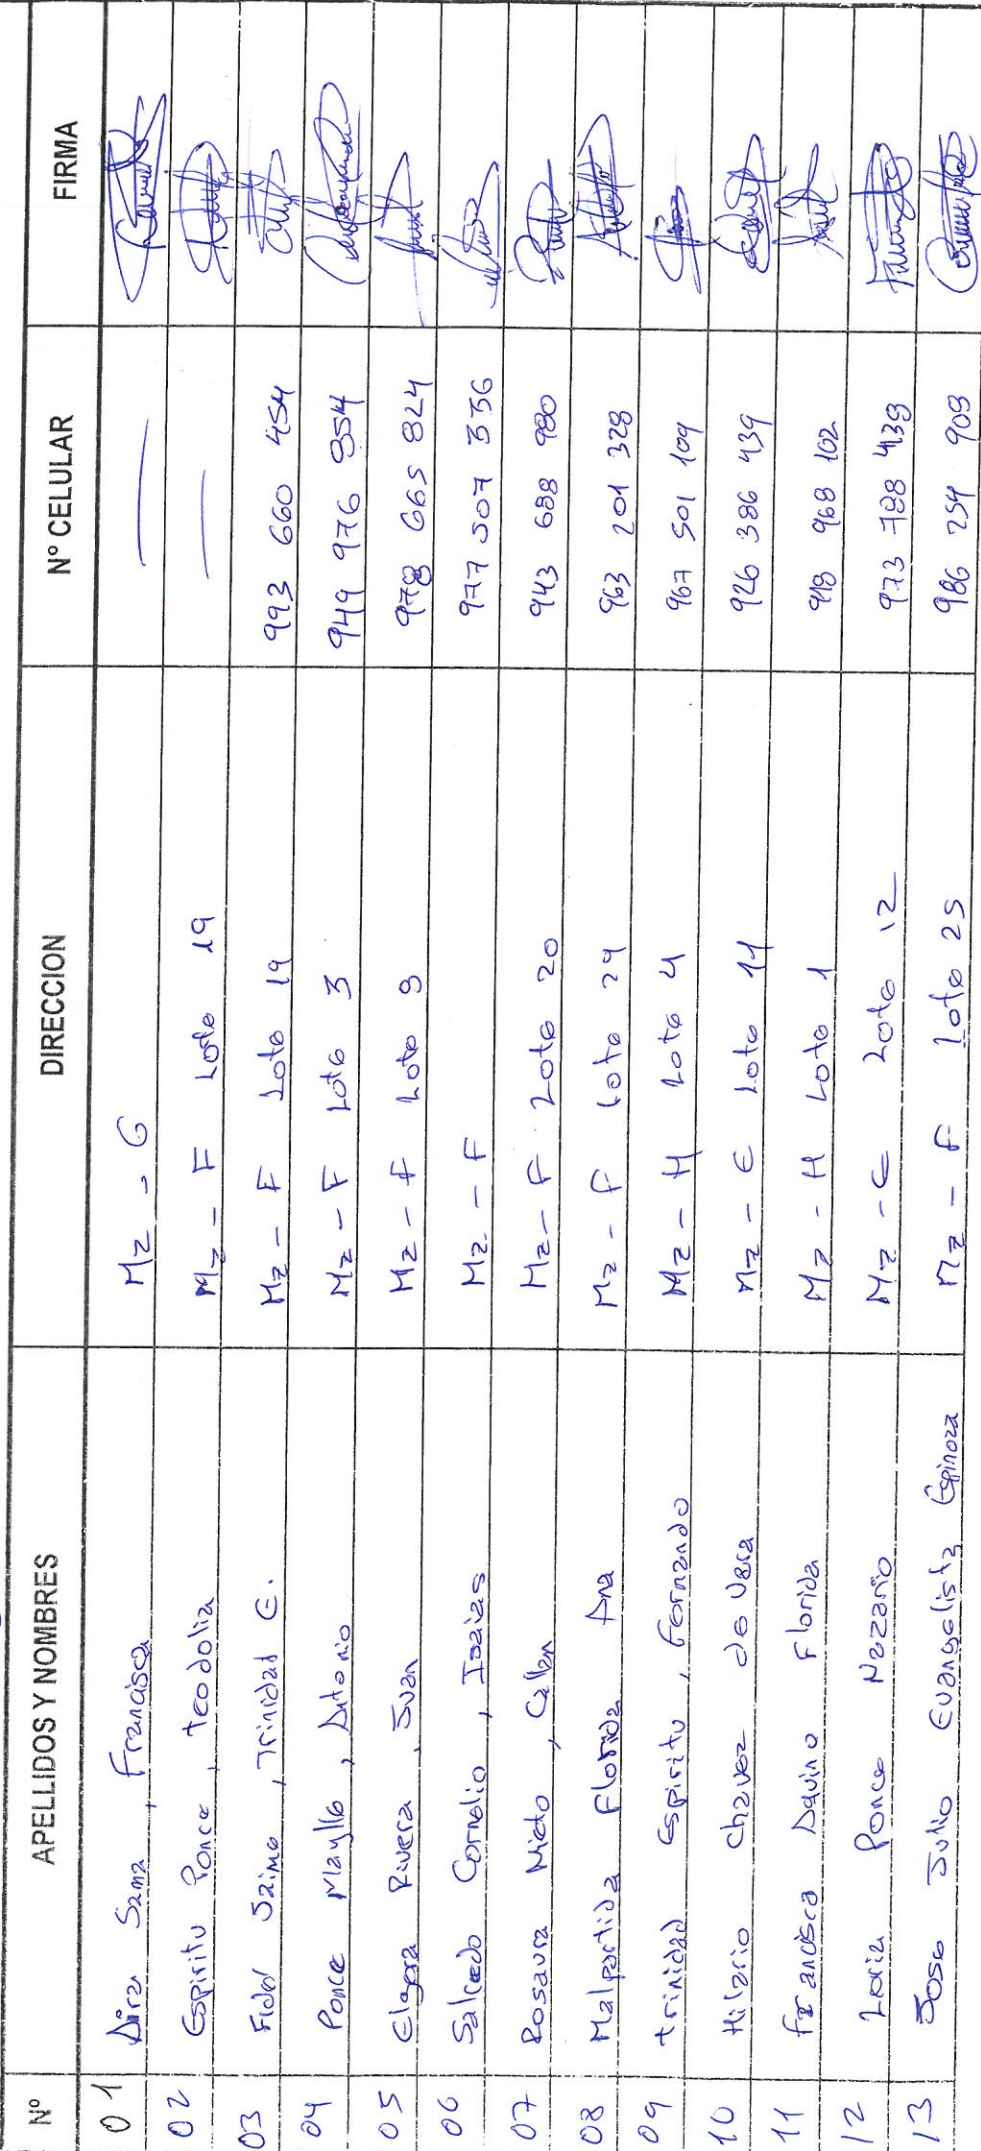 Nº APELLIDOS Y NOMBRES DIRECCION Nº CELULAR FIRMA
01 Sama, Francisca Mz - G —
02 Espiritu Ponce, Teodolia Mz - F Lote 19 —
03 Fidel Jaime, Trinidad E. Mz - F Lote 19 993 660 454
04 Ponce Mayllo, Antonio Mz - F Lote 3 949 976 854
05 Rivera, Juan Mz - F Lote 9 978 665 824
06 Salcedo Cornelio, Isaias Mz - F 977 507 336
07 Rosaura Nieto, Mz - F Lote 20 943 688 980
08 Malpartida Florida Ana Mz - F Lote 24 963 201 328
09 trinidad Espiritu, Fernando Mz - H Lote 4 967 501 109
10 Hilario Chavez de Vara Mz - E Lote 11 926 386 439
11 Francisca Davino Florida Mz - H Lote 1 918 968 102
12 Ponce Nazario Mz - E Lote 12 973 788
13 Jose Julio Evangelista Espinoza Mz - F Lote 25 986 254 909